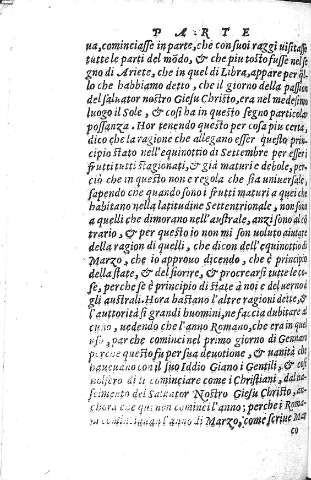 PARTE
ua, cominciasse in parte, che con suoi raggi uisitasse
tutte le parti del mõdo, & che piu tosto fusse nel se
gno di Ariete, che in quel di Libra, appare per q̃l
lo che habbiamo detto, che il giorno della passion
del saluator nostro Giesu Christo, era nel medesimo
luogo il Sole, & cosi ha in questo segno particolar
possanza. Hor tenendo questo per cosa piu certa,
dico che la ragione che allegano esser questo prin-
cipio stato nell'equinottio di Settembre per esserui
frutti tutti stagionati, & già maturi è debole, per-
ciò che in questo non è regola che sia uniuersale,
sapendo che quando sono i frutti maturi a quei che
habitano nella latitudine Settentrionale, non sono
a quelli che dimorano nell'australe, anzi sono al cõ
trario, & per questo io non mi son uoluto aiutare
della ragion di quelli, che dicon dell'equinottio di
Marzo, che io approuo dicendo, che è principio
della state, & del fiorire, & procrearsi tutte le co-
se, perche se è principio di state à noi è del uerno à
gli australi. Hora bastano l'altre ragioni dette, &
l'autorità si grandi huomini, ne faccia dubitare al
cuno, uedendo che l'anno Romano, che era in quel
uso, par che cominci nel primo giorno di Gennaro
perche questo fu per sua deuotione, & uanità che
haueuano con il suo Iddio Giano i Gentili, & cosi
uolsero di li cominciare come i Christiani, dal na-
scimento del Saluator Nostro Giesu Christo, an-
chora che qui non cominci l'anno; perche i Roma-
ni cominciauan l'anno di Marzo, come scriue Mar
co